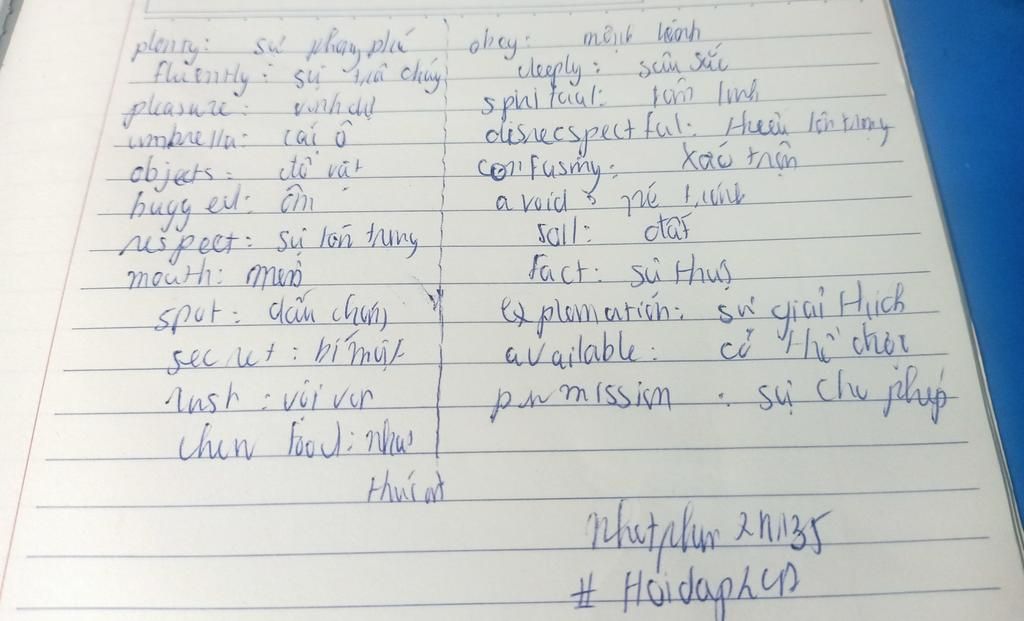 plenty: sự phong phú
fluently: sự trôi chảy
pleasure: vinh dự
umbrella: cái ô
objects: đồ vật
hugg ed: ôm
respect: sự tôn trọng
mouth:
spot: dấu chấm
secret: bí mật
rush: vội vã
chew food: nhai
thức ăn
obey: mệnh lệnh
deeply: sâu sắc
tâm linh
disrecspectful: thiếu tôn trọng
confusing:
avoid: né tránh
sall: đất
fact: sự thật
explamation: sự giải thích
available: có thể
permission: sự cho phép
2k135
# Hoidap